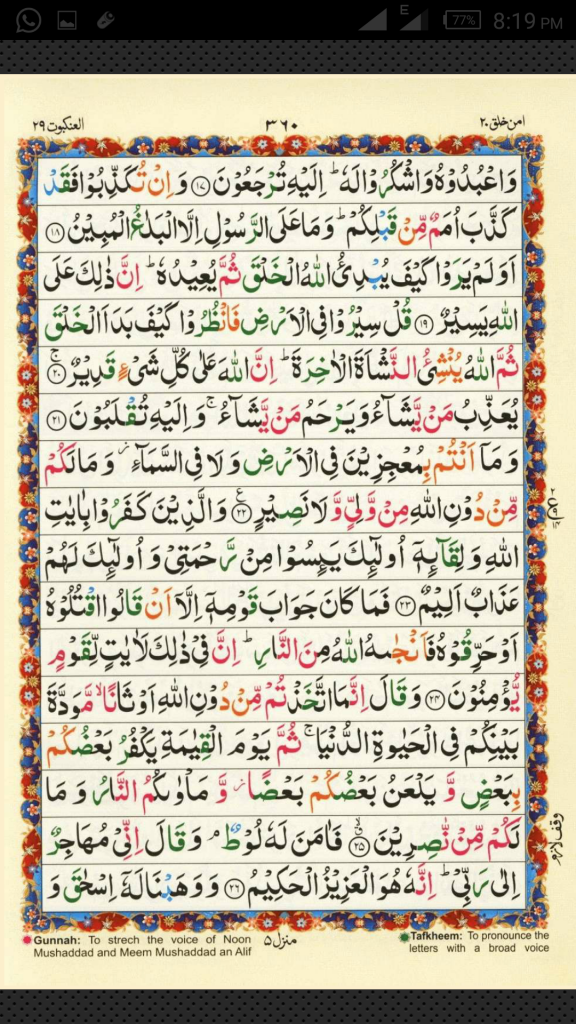 E 77% 8:19 PM
امن خلق ۲۰ ۳۶۰ العنکبوت ۲۹
وَاعْبُدُوْهُ وَاشْكُرُوْا لَهٗ ؕ اِلَيْهِ تُرْجَعُوْنَ ﴿۱۷﴾ وَ اِنْ تُكَذِّبُوْا فَقَدْ
كَذَّبَ اُمَمٌ مِّنْ قَبْلِكُمْ ؕ وَمَا عَلَى الرَّسُوْلِ اِلَّا الْبَلٰغُ الْمُبِيْنُ ﴿۱۸﴾
اَوَلَمْ يَرَوْا كَيْفَ يُبْدِئُ اللّٰهُ الْخَلْقَ ثُمَّ يُعِيْدُهٗ ؕ اِنَّ ذٰلِكَ عَلَى
اللّٰهِ يَسِيْرٌ ﴿۱۹﴾ قُلْ سِيْرُوْا فِى الْاَرْضِ فَانْظُرُوْا كَيْفَ بَدَاَ الْخَلْقَ
ثُمَّ اللّٰهُ يُنْشِئُ النَّشْاَةَ الْاٰخِرَةَ ؕ اِنَّ اللّٰهَ عَلٰى كُلِّ شَىْءٍ قَدِيْرٌ ﴿۲۰﴾ ۚ
يُعَذِّبُ مَنْ يَّشَآءُ وَيَرْحَمُ مَنْ يَّشَآءُ ۚ وَاِلَيْهِ تُقْلَبُوْنَ ﴿۲۱﴾
وَمَاۤ اَنْتُمْ بِمُعْجِزِيْنَ فِى الْاَرْضِ وَلَا فِى السَّمَآءِ ؗ وَمَا لَكُمْ
مِّنْ دُوْنِ اللّٰهِ مِنْ وَّلِىٍّ وَّلَا نَصِيْرٍ ﴿۲۲﴾ وَالَّذِيْنَ كَفَرُوْا بِاٰيٰتِ
اللّٰهِ وَلِقَآئِهٖۤ اُولٰٓئِكَ يَئِسُوْا مِنْ رَّحْمَتِىْ وَاُولٰٓئِكَ لَهُمْ
عَذَابٌ اَلِيْمٌ ﴿۲۳﴾ فَمَا كَانَ جَوَابَ قَوْمِهٖۤ اِلَّاۤ اَنْ قَالُوا اقْتُلُوْهُ
اَوْ حَرِّقُوْهُ فَاَنْجٰىهُ اللّٰهُ مِنَ النَّارِ ؕ اِنَّ فِىْ ذٰلِكَ لَاٰيٰتٍ لِّقَوْمٍ
يُّؤْمِنُوْنَ ﴿۲۴﴾ وَقَالَ اِنَّمَا اتَّخَذْتُمْ مِّنْ دُوْنِ اللّٰهِ اَوْثَانًا ۙ مَّوَدَّةَ
بَيْنِكُمْ فِى الْحَيٰوةِ الدُّنْيَا ۚ ثُمَّ يَوْمَ الْقِيٰمَةِ يَكْفُرُ بَعْضُكُمْ
بِبَعْضٍ وَّ يَلْعَنُ بَعْضُكُمْ بَعْضًا ؗ وَّ مَاْوٰىكُمُ النَّارُ وَمَا
لَكُمْ مِّنْ نّٰصِرِيْنَ ﴿۲۵﴾ ۙ فَاٰمَنَ لَهٗ لُوْطٌ ۘ وَقَالَ اِنِّىْ مُهَاجِرٌ
اِلٰى رَبِّىْ ؕ اِنَّهٗ هُوَ الْعَزِيْزُ الْحَكِيْمُ ﴿۲۶﴾ وَوَهَبْنَا لَهٗۤ اِسْحٰقَ وَ
وقف لازم
منزل ۵
Gunnah: To strech the voice of Noon
Mushaddad and Meem Mushaddad an Alif
Tafkheem: To pronounce the
letters with a broad voice